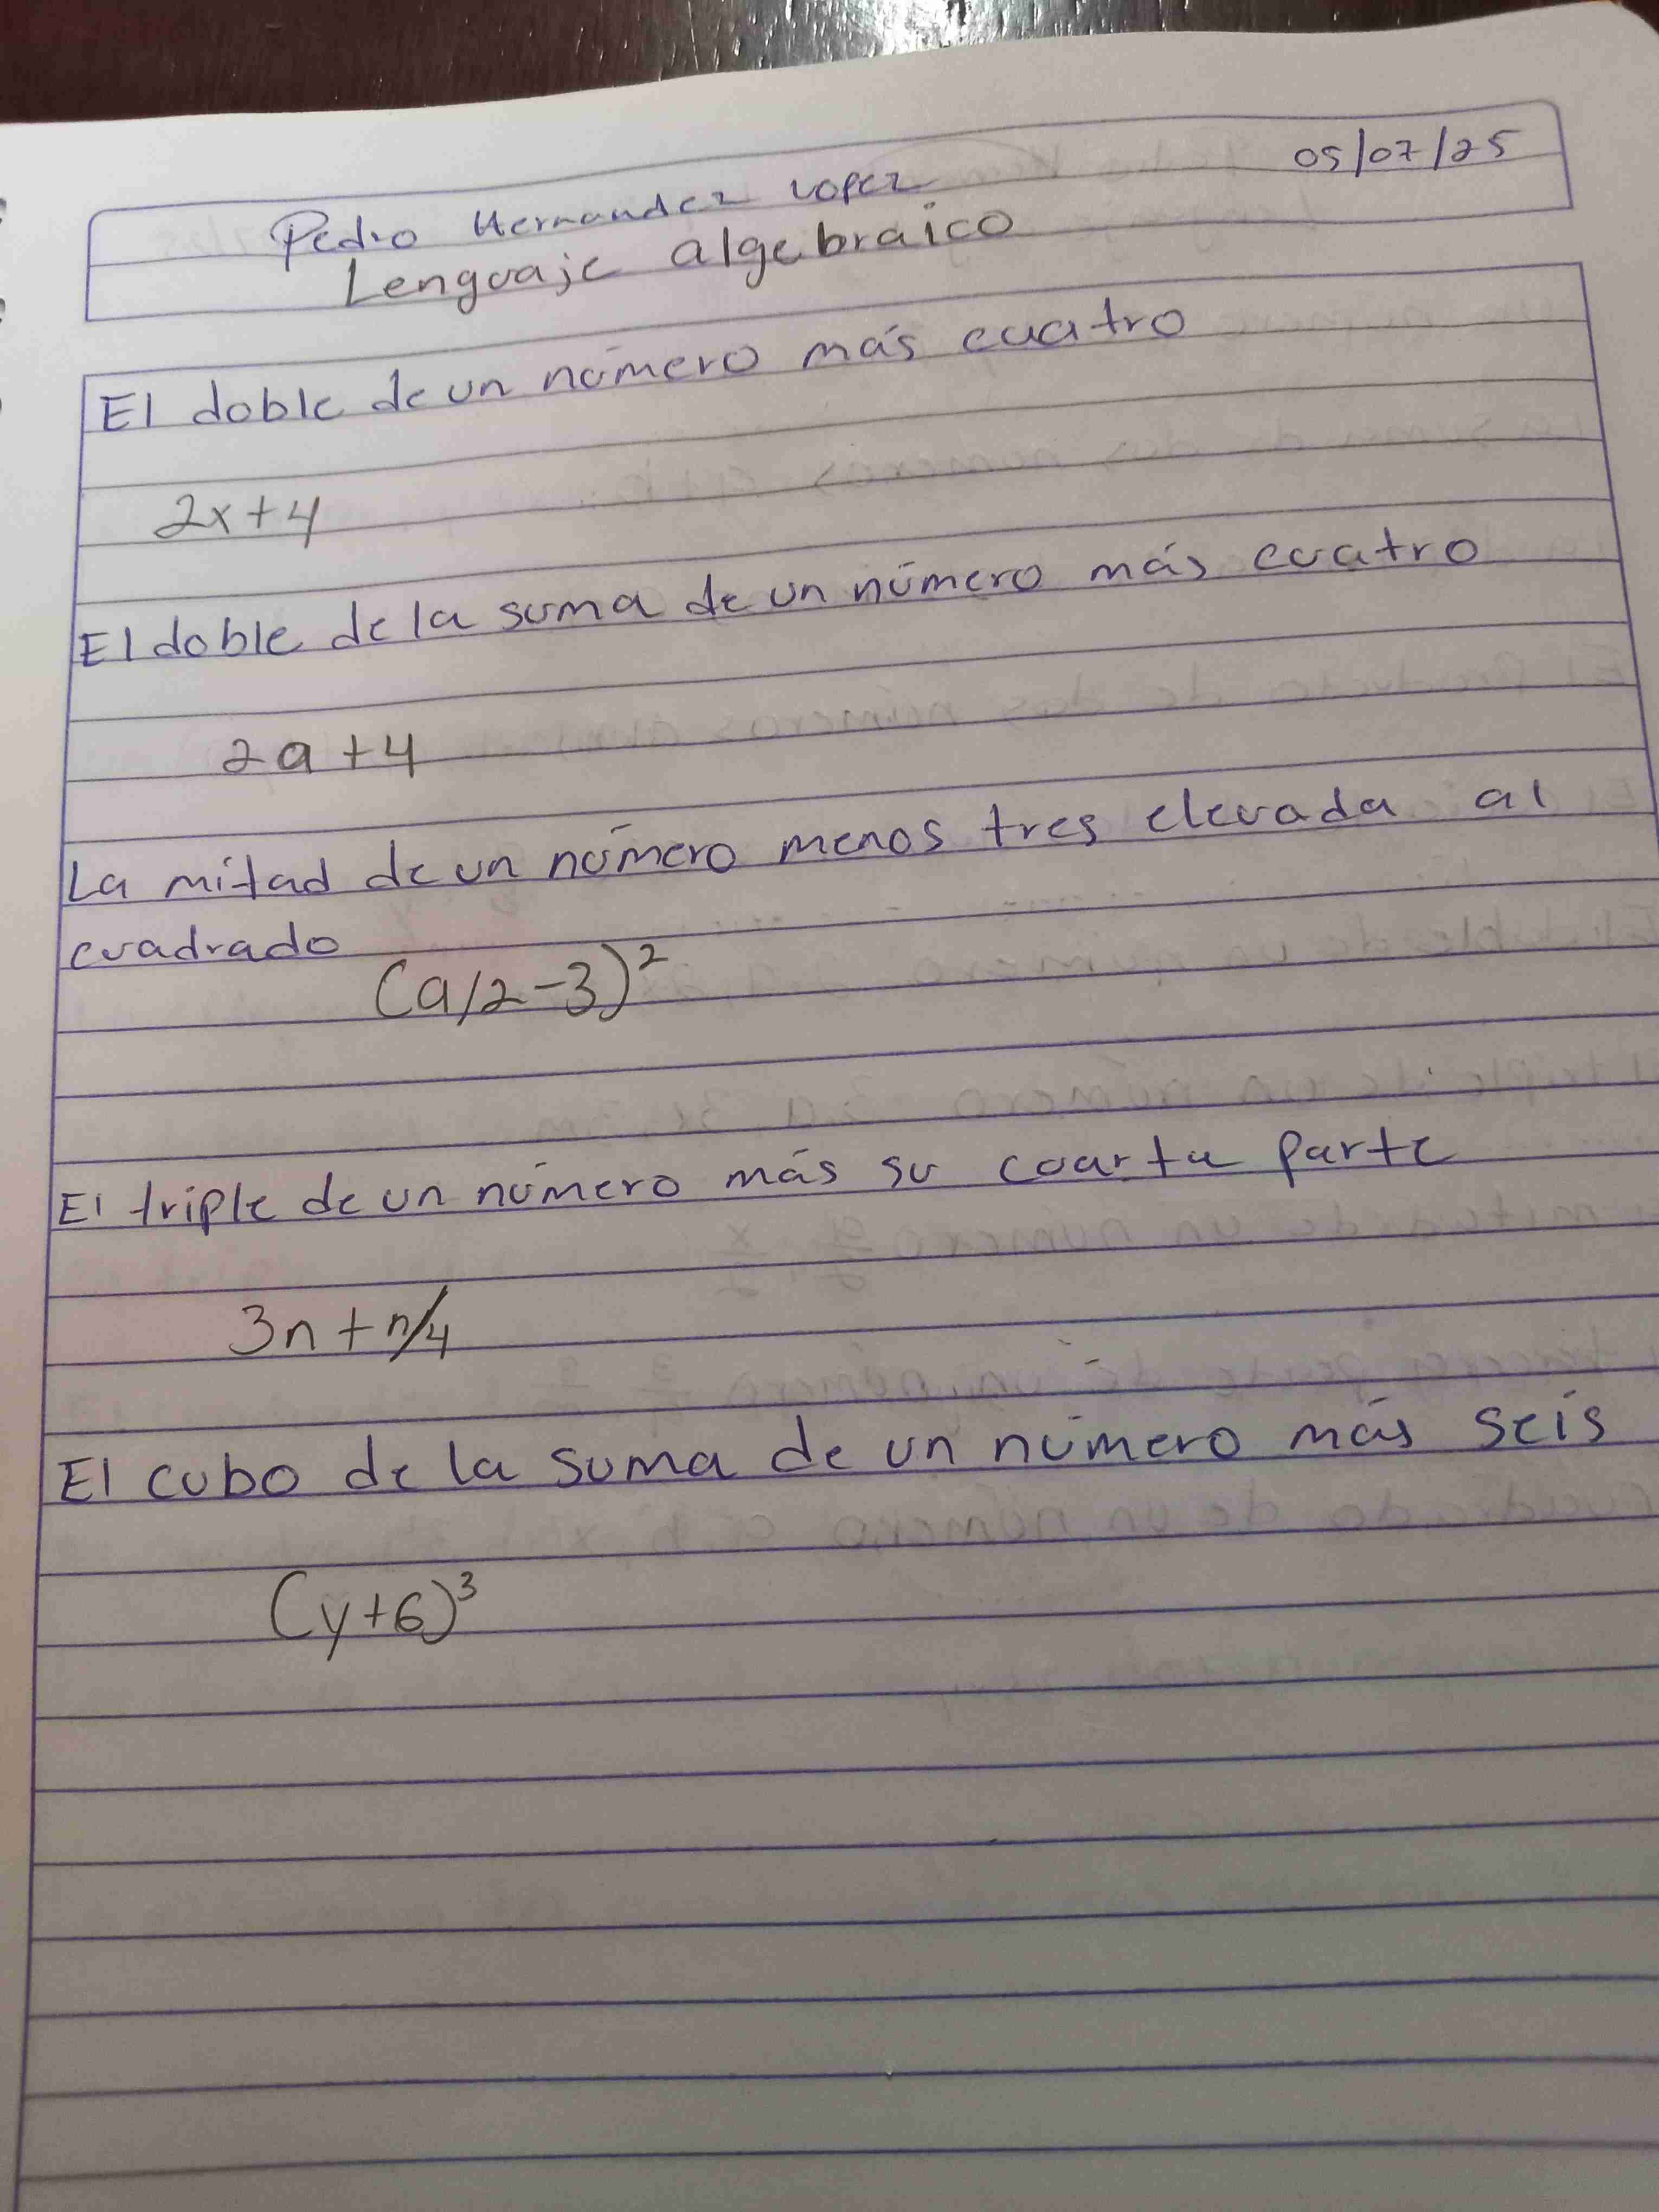 05/07/25
Pedro Hernandez Lopez
Lenguaje algebraico
El doble de un número más cuatro
2x+4
El doble de la suma de un número más cuatro
2a+4
La mitad de un número menos tres elevada al
cuadrado
(a/2-3)²
El triple de un número más su cuarta parte
3n+n/4
El cubo de la suma de un número más seis
(y+6)³